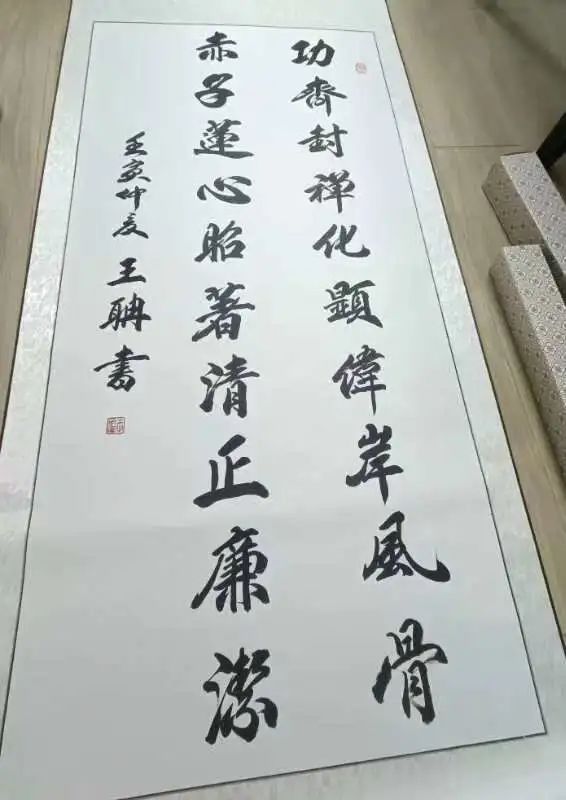 功齊封禪化顕偉岸風骨
赤子蓮心昭著清正廉潔
壬寅仲夏 王聃書